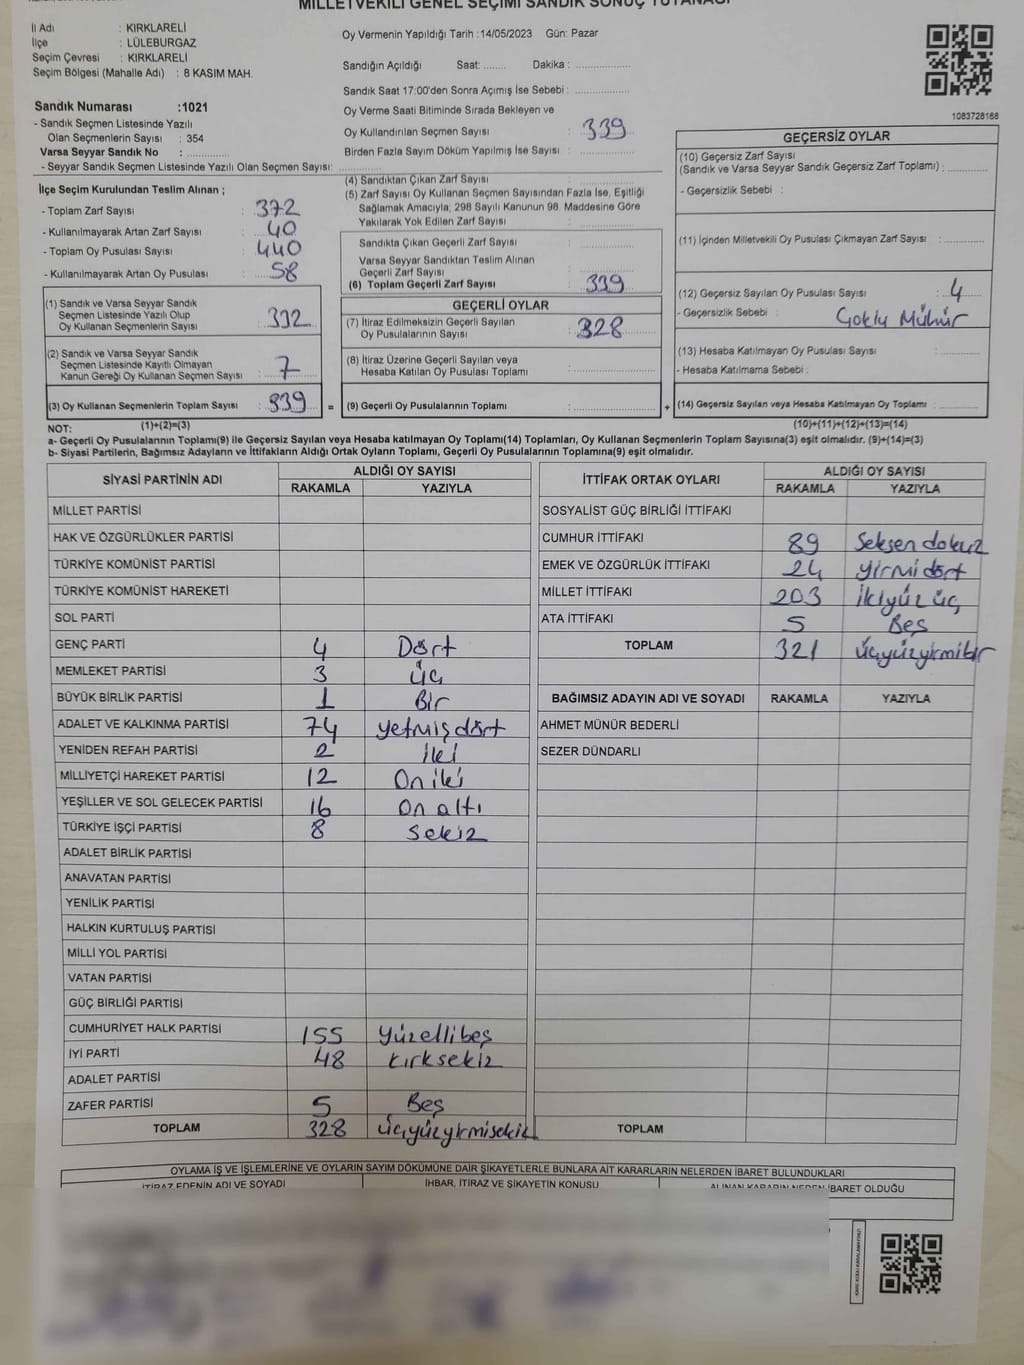 MİLLETVEKİLİ GENEL SEÇİMİ SANDIK SONUÇ TUTANAĞI
İl Adı : KIRKLARELİ
İlçe : LÜLEBURGAZ
Seçim Çevresi : KIRKLARELİ
Seçim Bölgesi (Mahalle Adı) : 8 KASIM MAH.
Oy Vermenin Yapıldığı Tarih :14/05/2023 Gün: Pazar
Sandığın Açıldığı Saat: ....... Dakika : ................
Sandık Saat 17:00'den Sonra Açımış İse Sebebi : ................
Oy Verme Saati Bitiminde Sırada Bekleyen ve
Oy Kullandırılan Seçmen Sayısı : 339
Birden Fazla Sayım Döküm Yapılmış İse Sayısı : ................
1083728168
Sandık Numarası :1021
- Sandık Seçmen Listesinde Yazılı
Olan Seçmenlerin Sayısı : 354
Varsa Seyyar Sandık No : ............
- Seyyar Sandık Seçmen Listesinde Yazılı Olan Seçmen Sayısı: ............
İlçe Seçim Kurulundan Teslim Alınan ;
- Toplam Zarf Sayısı : 372
- Kullanılmayarak Artan Zarf Sayısı : 40
- Toplam Oy Pusulası Sayısı : 440
- Kullanılmayarak Artan Oy Pusulası : 58
(1) Sandık ve Varsa Seyyar Sandık
Seçmen Listesinde Yazılı Olup
Oy Kullanan Seçmenlerin Sayısı : 332
(2) Sandık ve Varsa Seyyar Sandık
Seçmen Listesinde Kayıtlı Olmayan
Kanun Gereği Oy Kullanan Seçmen Sayısı : 7
(3) Oy Kullanan Seçmenlerin Toplam Sayısı : 339 =
(4) Sandıktan Çıkan Zarf Sayısı : ................
(5) Zarf Sayısı Oy Kullanan Seçmen Sayısından Fazla İse, Eşitliği
Sağlamak Amacıyla, 298 Sayılı Kanunun 98. Maddesine Göre
Yakılarak Yok Edilen Zarf Sayısı : ................
Sandıkta Çıkan Geçerli Zarf Sayısı : ................
Varsa Seyyar Sandıktan Teslim Alınan
Geçerli Zarf Sayısı : ................
(6) Toplam Geçerli Zarf Sayısı : 339
GEÇERLİ OYLAR
(7) İtiraz Edilmeksizin Geçerli Sayılan
Oy Pusulalarının Sayısı : 328
(8) İtiraz Üzerine Geçerli Sayılan veya
Hesaba Katılan Oy Pusulası Toplamı : ................
(9) Geçerli Oy Pusulalarının Toplamı : ................ +
GEÇERSİZ OYLAR
(10) Geçersiz Zarf Sayısı
(Sandık ve Varsa Seyyar Sandık Geçersiz Zarf Toplamı) : ............
- Geçersizlik Sebebi :
(11) İçinden Milletvekili Oy Pusulası Çıkmayan Zarf Sayısı : ............
(12) Geçersiz Sayılan Oy Pusulası Sayısı : 4
- Geçersizlik Sebebi : Çoklu Mühür
(13) Hesaba Katılmayan Oy Pusulası Sayısı : ............
- Hesaba Katılmama Sebebi :
(14) Geçersiz Sayılan veya Hesaba Katılmayan Oy Toplamı : ............
NOT: (1)+(2)=(3) (10)+(11)+(12)+(13)=(14)
a- Geçerli Oy Pusulalarının Toplamı(9) ile Geçersiz Sayılan veya Hesaba katılmayan Oy Toplamı(14) Toplamları, Oy Kullanan Seçmenlerin Toplam Sayısına(3) eşit olmalıdır. (9)+(14)=(3)
b- Siyasi Partilerin, Bağımsız Adayların ve İttifakların Aldığı Ortak Oyların Toplamı, Geçerli Oy Pusulalarının Toplamına(9) eşit olmalıdır.
SİYASİ PARTİNİN ADI ALDIĞI OY SAYISI
RAKAMLA YAZIYLA
MİLLET PARTİSİ
HAK VE ÖZGÜRLÜKLER PARTİSİ
TÜRKİYE KOMÜNİST PARTİSİ
TÜRKİYE KOMÜNİST HAREKETİ
SOL PARTİ
GENÇ PARTİ 4 Dört
MEMLEKET PARTİSİ 3 üç
BÜYÜK BİRLİK PARTİSİ 1 Bir
ADALET VE KALKINMA PARTİSİ 74 yetmişdört
YENİDEN REFAH PARTİSİ 2 iki
MİLLİYETÇİ HAREKET PARTİSİ 12 Oniki
YEŞİLLER VE SOL GELECEK PARTİSİ 16 On altı
TÜRKİYE İŞÇİ PARTİSİ 8 Sekiz
ADALET BİRLİK PARTİSİ
ANAVATAN PARTİSİ
YENİLİK PARTİSİ
HALKIN KURTULUŞ PARTİSİ
MİLLİ YOL PARTİSİ
VATAN PARTİSİ
GÜÇ BİRLİĞİ PARTİSİ
CUMHURİYET HALK PARTİSİ 155 Yüzellibeş
İYİ PARTİ 48 kırksekiz
ADALET PARTİSİ
ZAFER PARTİSİ 5 Beş
TOPLAM 328 üçyüzyirmisekiz
İTTİFAK ORTAK OYLARI ALDIĞI OY SAYISI
RAKAMLA YAZIYLA
SOSYALİST GÜÇ BİRLİĞİ İTTİFAKI
CUMHUR İTTİFAKI 89 Seksen dokuz
EMEK VE ÖZGÜRLÜK İTTİFAKI 24 yirmidört
MİLLET İTTİFAKI 203 ikiyüz üç
ATA İTTİFAKI 5 Beş
TOPLAM 321 üçyüzyirmibir
BAĞIMSIZ ADAYIN ADI VE SOYADI RAKAMLA YAZIYLA
AHMET MÜNÜR BEDERLİ
SEZER DÜNDARLI
TOPLAM
OYLAMA İŞ VE İŞLEMLERİNE VE OYLARIN SAYIM DÖKÜMÜNE DAİR ŞİKAYETLERLE BUNLARA AİT KARARLARIN NELERDEN İBARET BULUNDUKLARI
İTİRAZ EDENİN ADI VE SOYADI İHBAR, İTİRAZ VE ŞİKAYETİN KONUSU ALINAN KARARIN NEDEN İBARET OLDUĞU